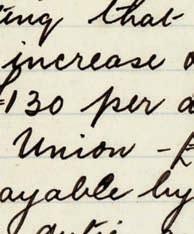 ting that
increase
130 per
Union - £
ayable by